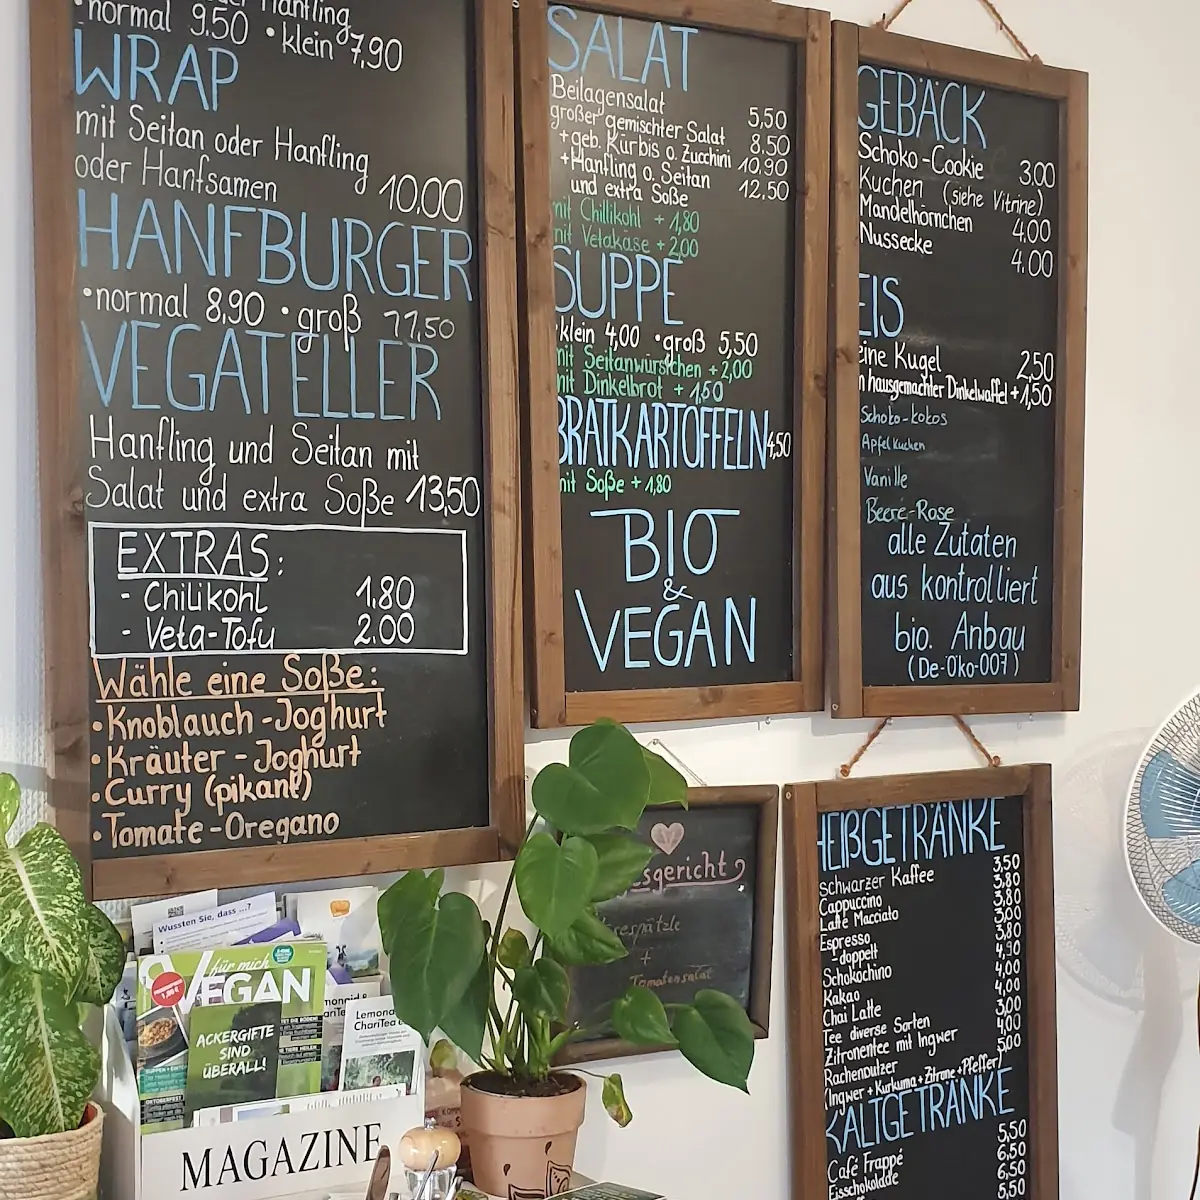 normal 9.50 • klein 7,90
WRAP
mit Seitan oder Hanfling
oder Hanfsamen 10,00
HANFBURGER
•normal 8,90 •groß 11,50
VEGATELLER
Hanfling und Seitan mit
Salat und extra Soße 13,50
EXTRAS:
- Chilikohl 1.80
- Veta-Tofu 2.00
Wähle eine Soße:
•Knoblauch-Joghurt
•Kräuter-Joghurt
•Curry (pikant)
•Tomate-Oregano
SALAT
Beilagensalat 5,50
großer gemischter Salat 8.50
+geb. Kürbis o. Zucchini 10,90
+Hanfling o. Seitan 12,50
und extra Soße
mit Chillikohl +1,80
mit Vetakäse +2,00
SUPPE
•klein 4,00 •groß 5,50
mit Seitanwürstchen +2,00
mit Dinkelbrot +1,50
BRATKARTOFFELN 4,50
mit Soße +1,80
BIO
&
VEGAN
GEBÄCK
Schoko-Cookie 3,00
Kuchen (siehe Vitrine)
Mandelhörnchen 4,00
Nussecke 4.00
EIS
eine Kugel 2,50
n hausgemachter Dinkelwaffel +1,50
Schoko-Kokos
Apfelkuchen
Vanille
Beere-Rose
alle Zutaten
aus kontrolliert
bio. Anbau
(De-Öko-007)
sgericht
spätzle
+
Tomatensalat
HEIßGETRÄNKE
Schwarzer Kaffee 3,50
Cappuccino 3,80
Latte Macciato 3,80
Espresso 3,00
-doppelt 3,80
Schokochino 4,90
Kakao 4,00
Chai Latte 4,00
Tee diverse Sorten 3,00
Zitronentee mit Ingwer 4,00
Rachenputzer 5,00
(Ingwer+Kurkuma+Zitrone+Pfeffer)
KALTGETRÄNKE
Café Frappé 5,50
Eisschokolade 6,50
6,50
5,50
Wussten Sie, dass ...?
für mich
VEGAN
ACKERGIFTE
SIND
ÜBERALL!
MAGAZINE